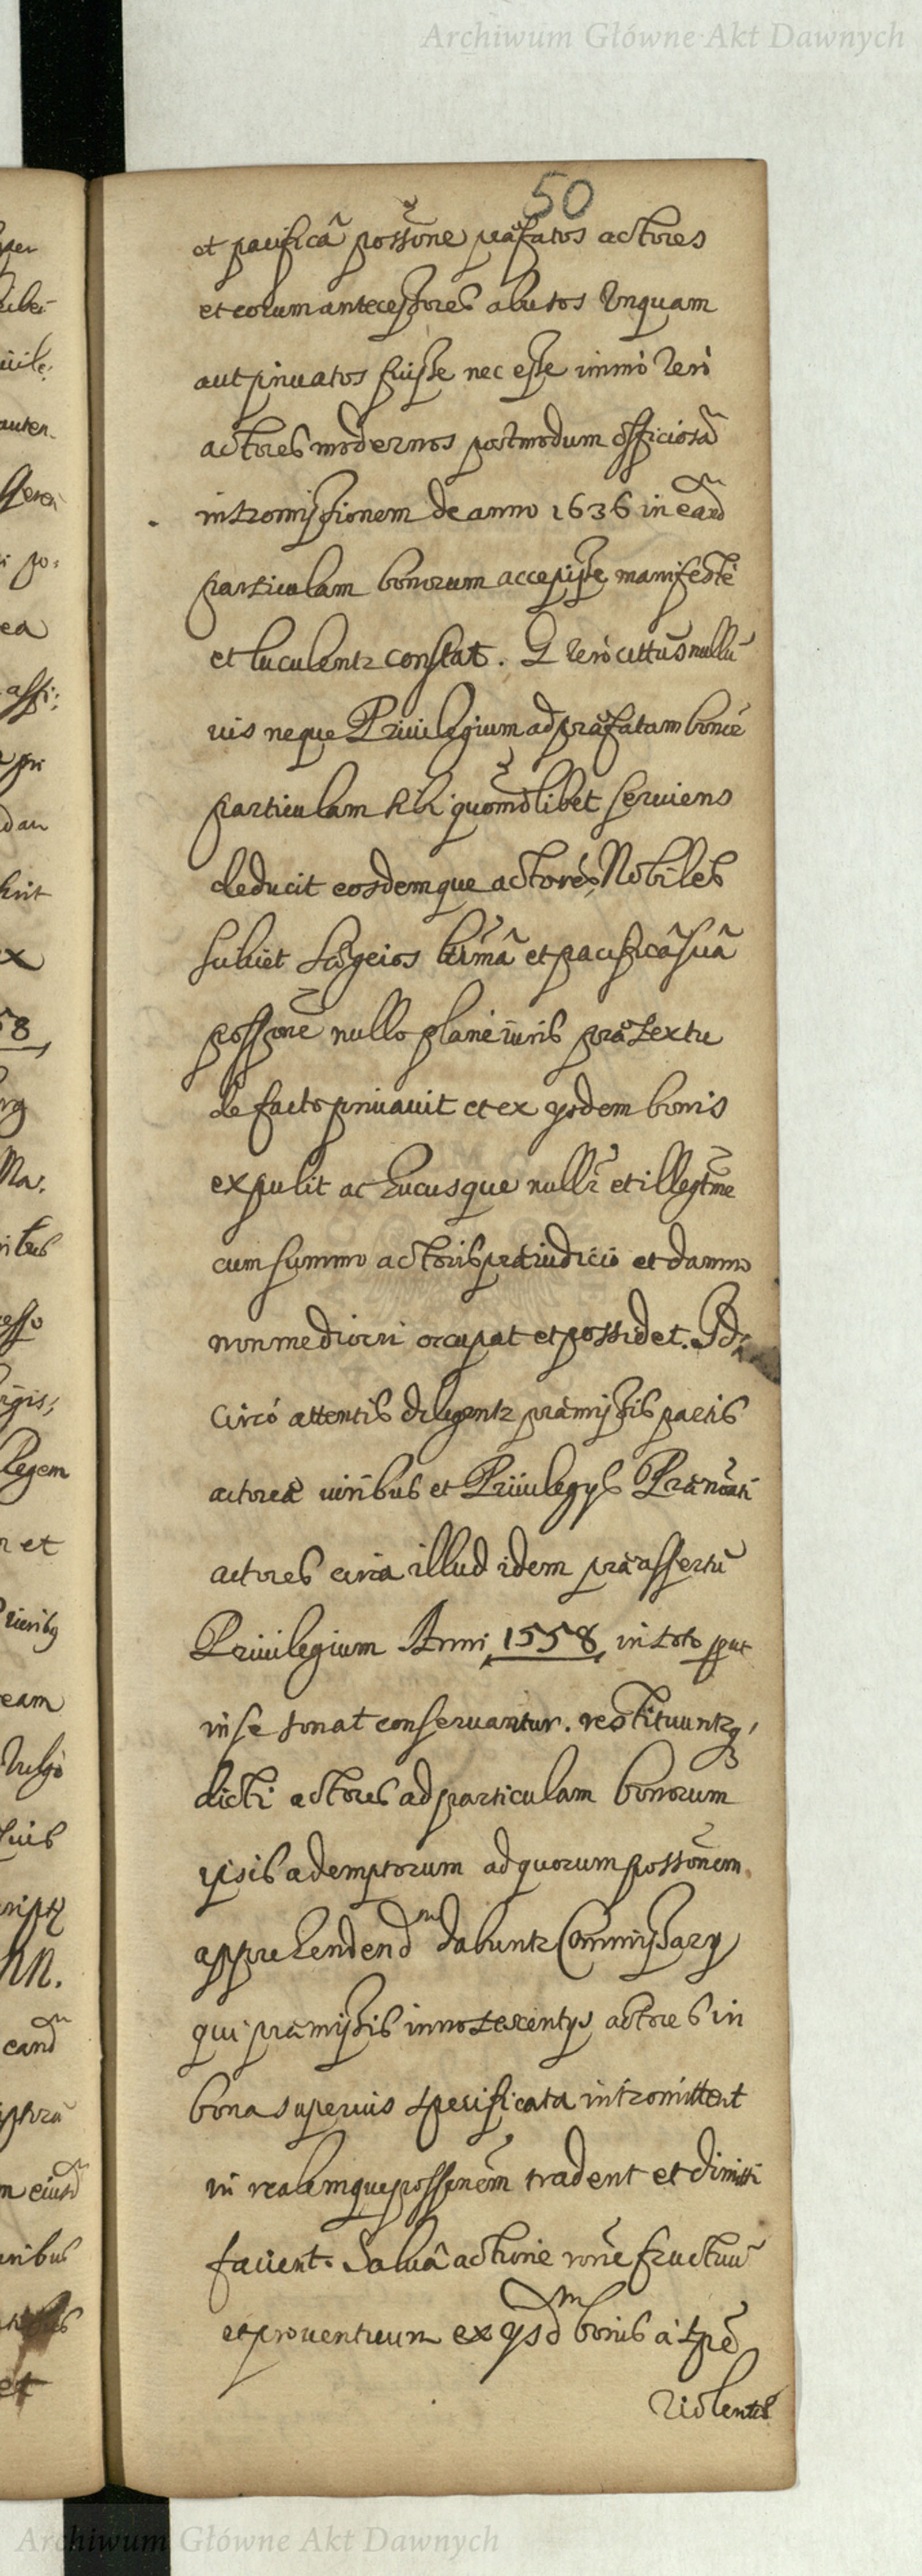 Archiwum Główne Akt Dawnych
50
et pacificâ possone præfatos actores
et eorum antecessores abutos unquam
aut privatos fuisse nec esse immò verò
actores modernos postmodum officiosã
intromissionem de anno 1636 in eand
particulam bonorum accepisse manifestè
et luculentr constat. Q verò cittus nullũ
ius neque Privilegium ad præfatam bonor
particulam sibi quomõlibet serviens
deducit eosdemque actores Nobiles
Subiet Sõgeios ltrmâ et pacificâ suâ
possone nullo planè iuris prætextu
de facto privavit et ex ysdem bonis
expulit ac hucusque nullr et illegtme
cum summo actoris præiudicio et damno
non mediocri occupat et possidet. Id
circò attentis diligentr præmissis partis
actoreæ iuribus et Privilegys Prænoati
actores circa illud idem præassertũ
Privilegium Anni 1558 in toto prut
in se sonat conservantur. restituuntq,
dicti actores ad particulam bonorum
ipsis ademptorum ad quorum possonem
apprehendend dabuntr Commissary
qui præmissis innotescentys actores in
bona superius specificata intromittent
in realemque possonem tradent et dimitti
facient. Salvâ actione rone fructuũ
et proventuum ex ysd bonis à tpre
violentæ
per
ea
x
58
rg
Ma.
esso
Legem
n et
eam
NN.
eand
m eiusd
uribus
et
Archiwum Główne Akt Dawnych